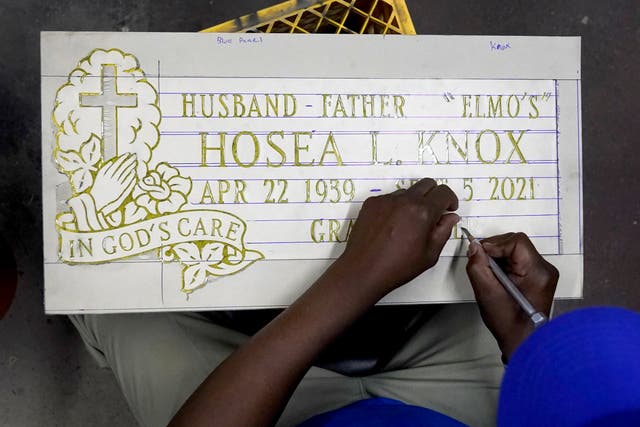 Blue Pearl
KNOX
HUSBAND - FATHER "ELMO'S"
HOSEA L. KNOX
APR 22 1939 - 5 2021
IN GOD'S CARE